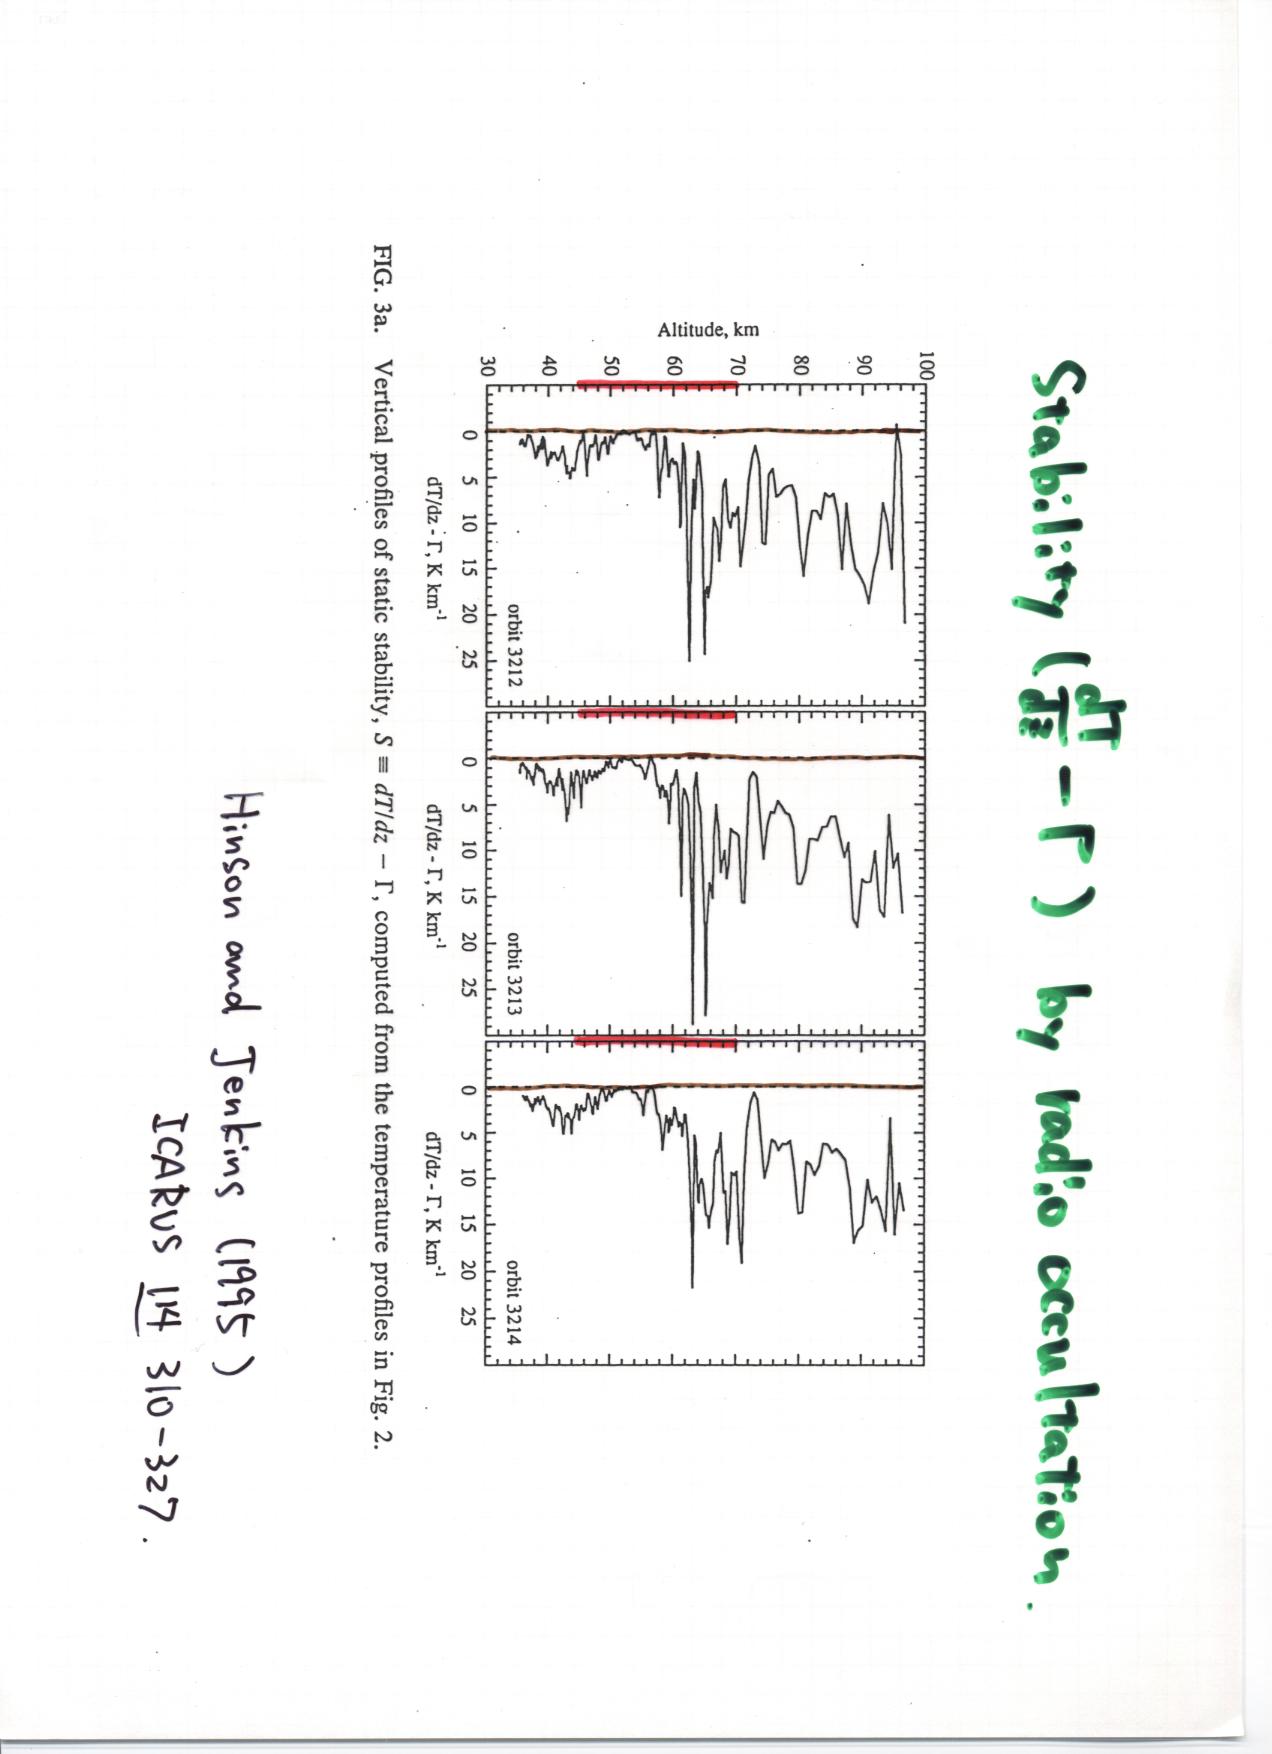 Stability (dT/dz - Γ) by radio occultation.
Altitude, km
100
90
80
70
60
50
40
30
0 5 10 15 20 25
0 5 10 15 20 25
0 5 10 15 20 25
orbit 3212
orbit 3213
orbit 3214
dT/dz - Γ, K km⁻¹
dT/dz - Γ, K km⁻¹
dT/dz - Γ, K km⁻¹
FIG. 3a. Vertical profiles of static stability, S ≡ dT/dz − Γ, computed from the temperature profiles in Fig. 2.
Hinson and Jenkins (1995)
ICARUS 114 310-327.